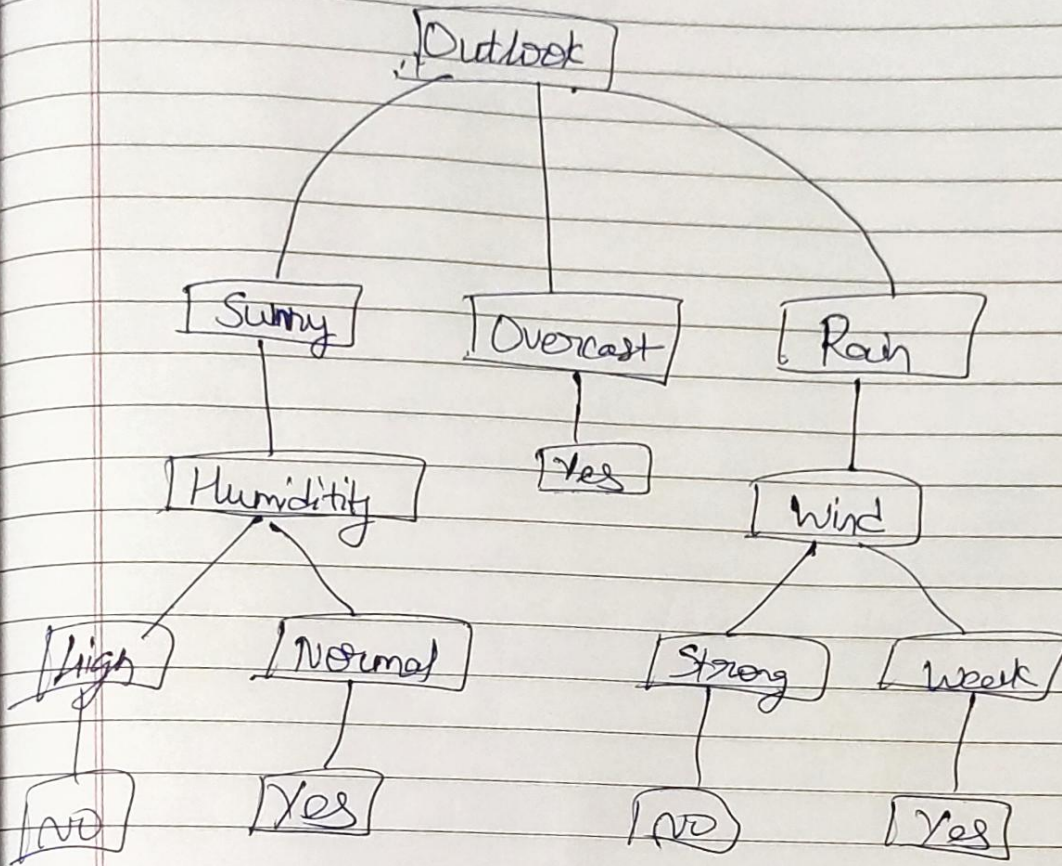 Outlook
Sunny Overcast Rain
Humiditity Yes Wind
High Normal Strong Weak
NO Yes NO Yes